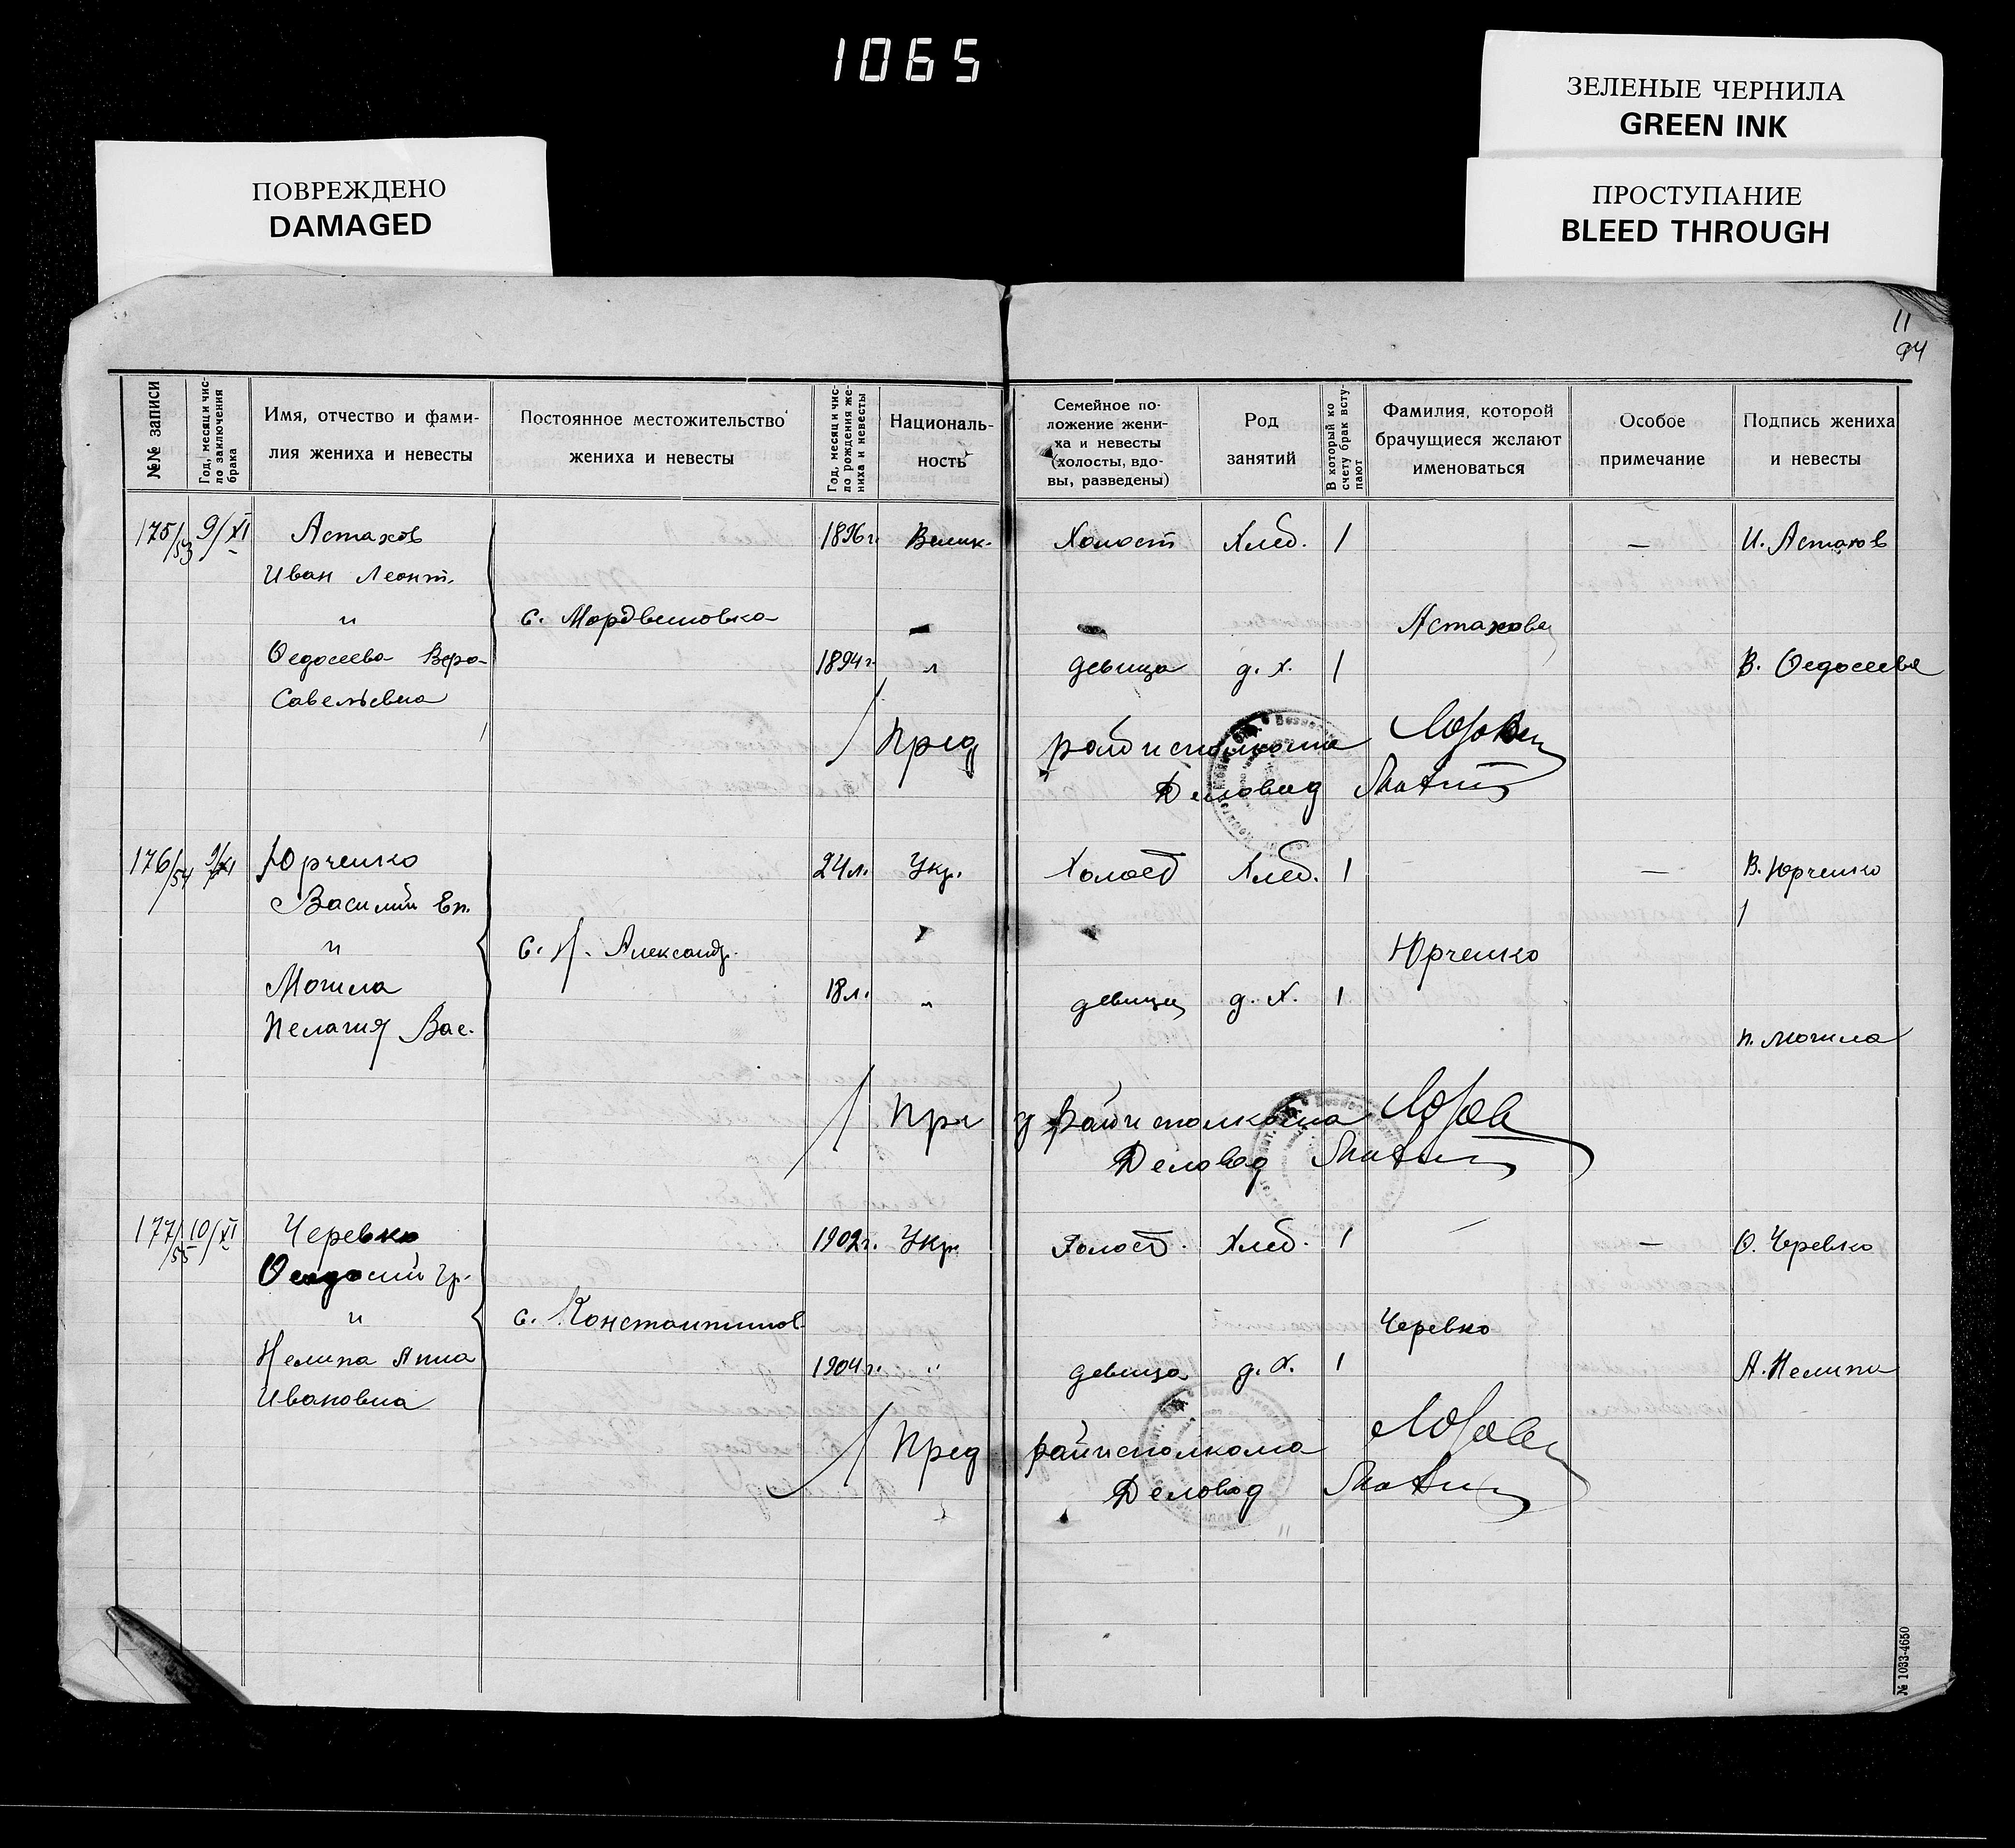 1065
ЗЕЛЕНЫЕ ЧЕРНИЛА
GREEN INK
ПОВРЕЖДЕНО
DAMAGED
ПРОСТУПАНИЕ
BLEED THROUGH
11
94
№№ записи
Год, месяц и чис-
ло заключения
брака
Имя, отчество и фами-
лия жениха и невесты
Постоянное местожительство
жениха и невесты
Год, месяц и чис-
ло рождения же-
ниха и невесты
Националь-
ность
Семейное по-
ложение жени-
ха и невесты
(холосты, вдо-
вы, разведены)
Род
занятий
В который ко
счету брак всту-
пают
Фамилия, которой
брачущиеся желают
именоваться
Особое
примечание
Подпись жениха
и невесты
175/53 9/XI Астахов 1896 г. Велик. Холост Хлеб. 1 — И. Астахов
Иван Леонт.
и с. Мордвиновка Астахова
Федосеева Вера 1894 г. " девица д. х. 1 В. Федосеева
Савельевна
Пред райисполкома
Деловод
176/54 9/XI Юрченко 24 л. Укр. Холост Хлеб. 1 — В. Юрченко
Василий Еп.
и с. Н. Александр. Юрченко
Могила 18 л. " девица д. х. 1
Пелагия Вас. П. Могила
Пред райисполкома
Деловод
177/55 10/XI Черевко 1902 г. Укр. Холост. Хлеб. 1 — — О. Черевко
Феодосий Гр.
и с. Константинов. Черевко
Нелипа Анна 1904 г. " девица д. х. 1 А. Нелипа
Ивановна
Пред райисполкома
Деловод
№ 1033-4650